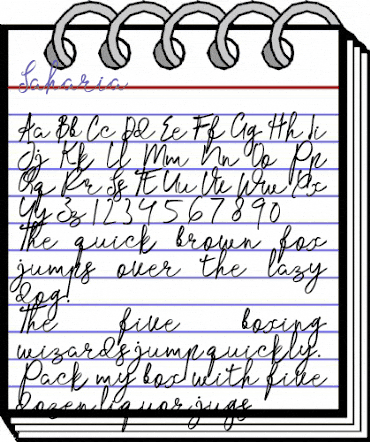 Saharia
Aa Bb Cc Dd Ee Ff Gg Hh Ii
Jj Kk Ll Mm Nn Oo Pp
Qq Rr Ss Tt Uu Vv Ww Xx
Yy Zz 1 2 3 4 5 6 7 8 9 0
The quick brown fox
jumps over the lazy
dog!
The five boxing
wizards jump quickly.
Pack my box with five
dozen liquor jugs